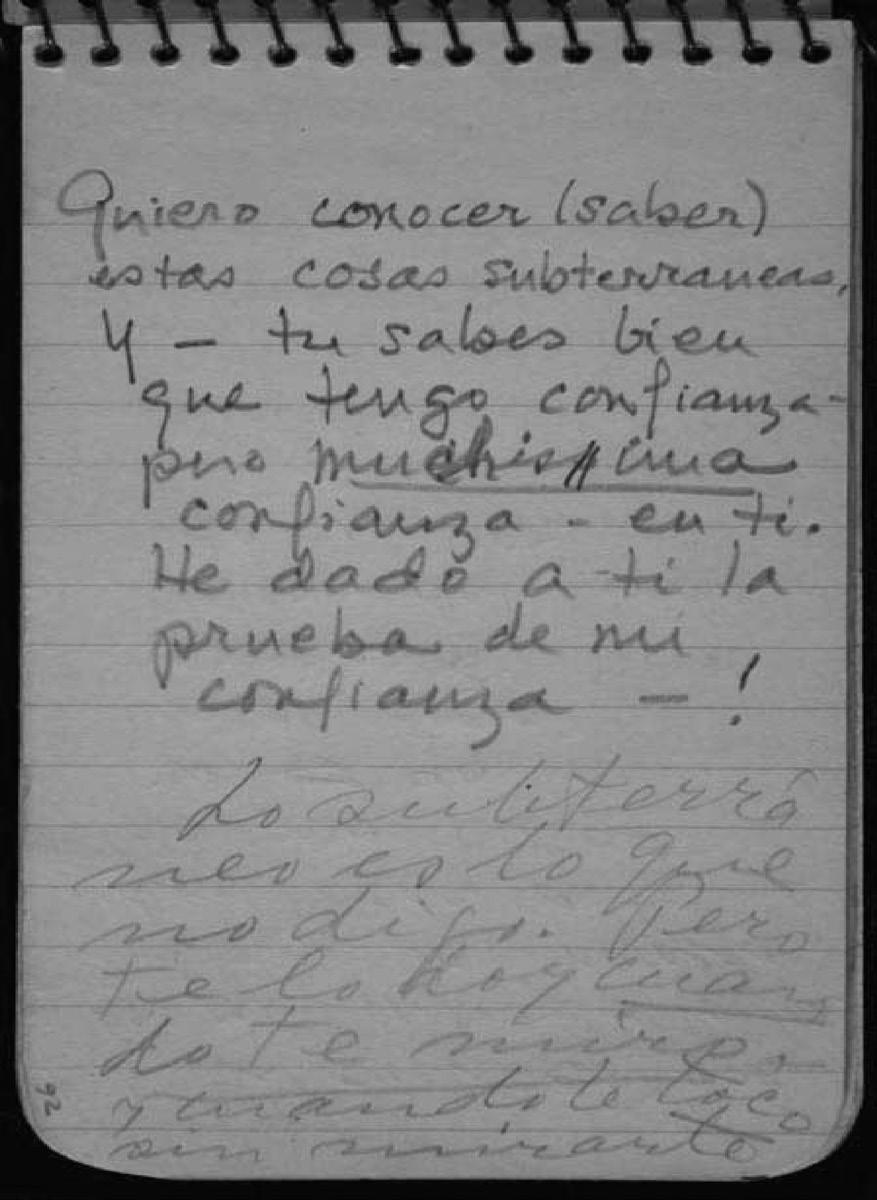 Quiero conocer (saber)
estas cosas subterraneas.
Y – tu sabes bien
que tengo confianza –
pero muchissima
confianza – en ti.
He dado a ti la
prueba de mi
confianza – !
Lo subterrá
neo es lo que
no digo. Pero
te lo doy cuan
do te miro
y cuando te toco
sin mirarte
92